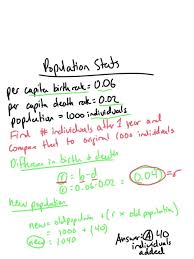 Population Stats
per capita birth rate = 0.06
per capita death rate = 0.02
population = 1000 individuals
Find # individuals after 1 year and
compare that to original 1000 individuals
Difference in birth & death
① = b-d
① = 0.06-0.02 = 0.04 = r
New population
new = old population + (r x old population)
new = 1000 + (40)
new = 1040
Answer: ④ 40
individuals
added